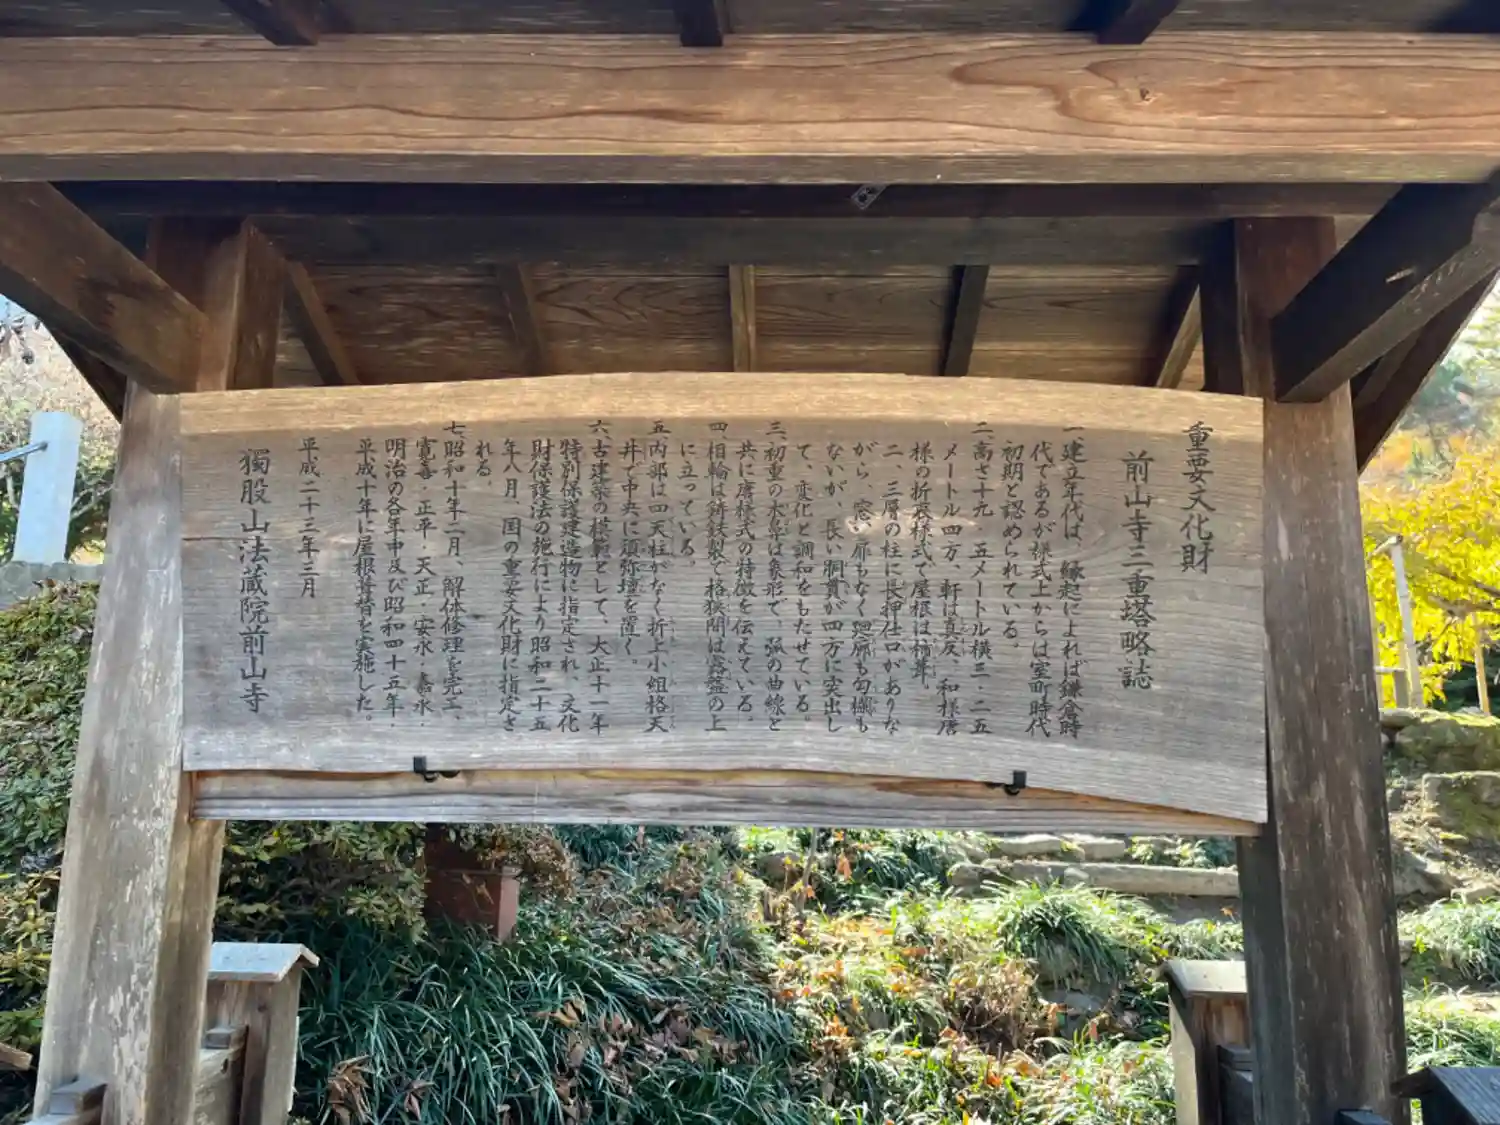 重要文化財
前山寺三重塔略誌
一、建立年代は、縁起によれば鎌倉時
代であるが様式上からは室町時代
初期と認められている。
二、高さ十九・五メートル横三・二五
メートル四方、軒は真反、和様唐
様の折衷様式で屋根は柿葺。
二、三層の柱に長押仕口がありな
がら、窓い扉もなく廻廊も勾欄も
ないが、長い胴貫が四方に突出し
て、変化と調和をもたせている。
三、初重の木鼻は象形で、弧の曲線と
共に唐様式の特徴を伝えている。
四、相輪は鋳鉄製で格狭間は露盤の上
に立っている。
五、内部は四天柱がなく折上小組格天
井で中央に須弥壇を置く。
六、古建築の模範として、大正十一年
特別保護建造物に指定され、文化
財保護法の施行により昭和二十五
年八月、国の重要文化財に指定さ
れる。
七、昭和十年二月、解体修理を完工、
寛喜・正平・天正・安永・嘉永・
明治の各年中及び昭和四十五年・
平成十年に屋根葺替を実施した。
平成二十三年三月
獨股山法蔵院前山寺